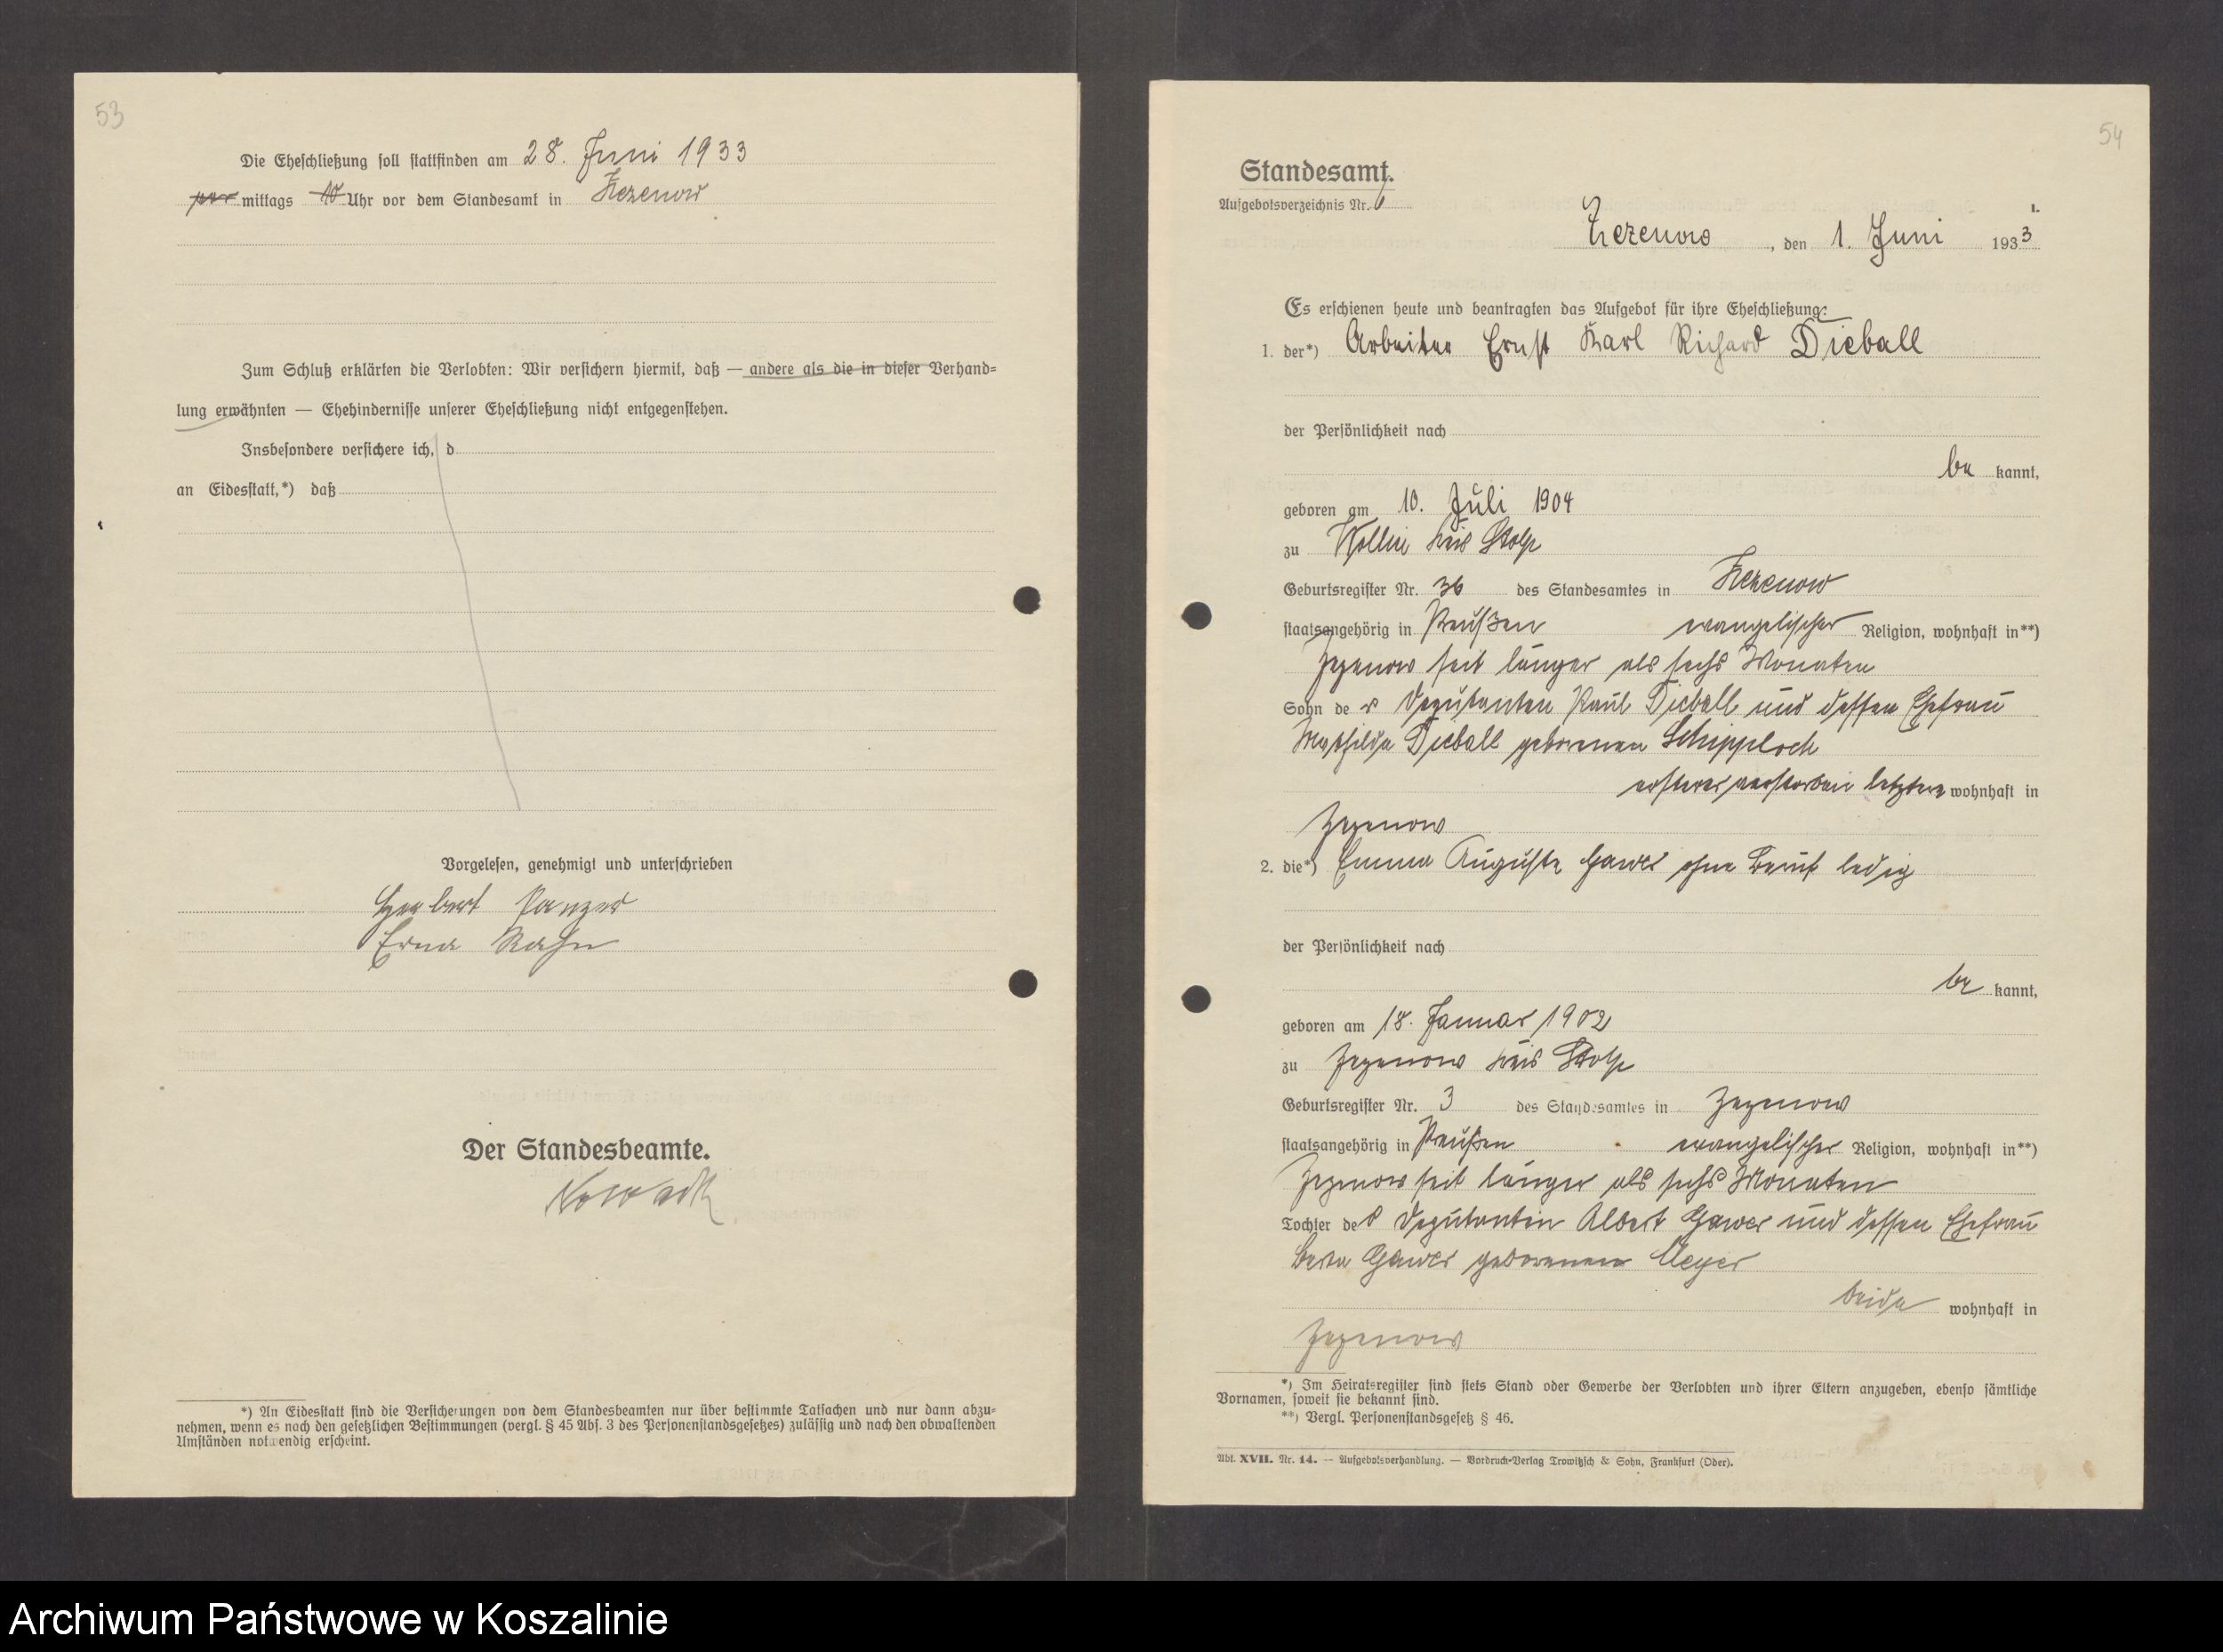 53
Die Eheschließung soll stattfinden am 28. Juni 1933
vor mittags 10 Uhr vor dem Standesamt in Zezenow
Zum Schluß erklärten die Verlobten: Wir versichern hiermit, daß — andere als die in dieser Verhand-
lung erwähnten — Ehehindernisse unserer Eheschließung nicht entgegenstehen.
Insbesondere versichere ich, d
an Eidesstatt,*) daß
Vorgelesen, genehmigt und unterschrieben
Herbert Panzer
Erna Rahn
Der Standesbeamte.
*) An Eidesstatt sind die Versicherungen von dem Standesbeamten nur über bestimmte Tatsachen und nur dann abzu-
nehmen, wenn es nach den gesetzlichen Bestimmungen (vergl. § 45 Abs. 3 des Personenstandsgesetzes) zulässig und nach den obwaltenden
Umständen notwendig erscheint.
54
Standesamt.
Aufgebotsverzeichnis Nr. 6
1.
Zezenow, den 1. Juni 1933
Es erschienen heute und beantragten das Aufgebot für ihre Eheschließung:
1. der*) Arbeiter Ernst Karl Richard Dieball
der Persönlichkeit nach
be kannt,
geboren am 10. Juli 1904
zu Wollin Kreis Stolp
Geburtsregister Nr. 36 des Standesamtes in Zezenow
staatsangehörig in Preußen evangelischer Religion, wohnhaft in**)
Zezenow seit länger als sechs Monaten
Sohn des Deputanten Paul Dieball und dessen Ehefrau
Mathilde Dieball geborenen Schipplock
ersterer verstorben letztere wohnhaft in
Zezenow
2. die*) Emma Auguste Gawer ohne Beruf ledig
der Persönlichkeit nach
be kannt,
geboren am 18. Januar 1902
zu Zezenow Kreis Stolp
Geburtsregister Nr. 3 des Standesamtes in Zezenow
staatsangehörig in Preußen evangelischer Religion, wohnhaft in**)
Zezenow seit länger als sechs Monaten
Tochter des Deputanten Albert Gawer und dessen Ehefrau
Berta Gawer geborenen
beide wohnhaft in
Zezenow
*) Im Heiratsregister sind stets Stand oder Gewerbe der Verlobten und ihrer Eltern anzugeben, ebenso sämtliche
Vornamen, soweit sie bekannt sind.
**) Vergl. Personenstandsgesetz § 46.
Abt. XVII. Nr. 14. — Aufgebotsverhandlung. — Vordruck-Verlag Trowitzsch & Sohn, Frankfurt (Oder).
Archiwum Państwowe w Koszalinie